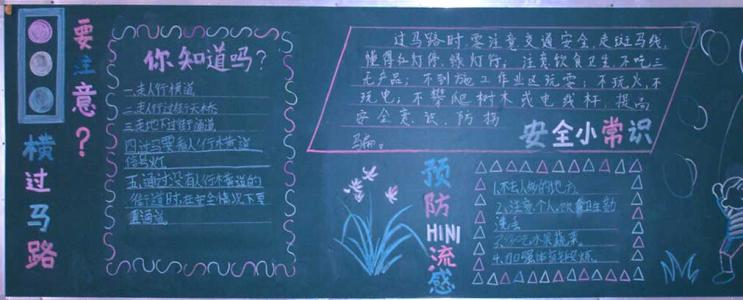 要注意?
横过马路
你知道吗?
一.走人行横道
二.走人行过街天桥
三.走地下过街通道
四.过马路要看人行横道
信号灯
五.通过没有人行横道的
街道时,在安全情况下再
通过
过马路时,要注意交通安全,走斑马线,
懂得红灯停、绿灯行;注意饮食卫生,不吃三
无产品;不到施工作业区玩耍;不玩火,不
玩电;不攀爬树木或电线杆,提高
安全意识,防拐
骗。
安全小常识
预防H1N1流感
1.不去人多的地方
2.注意个人、饮食卫生勤
洗
3.多吃水果蔬菜。
4.加强体育锻炼。